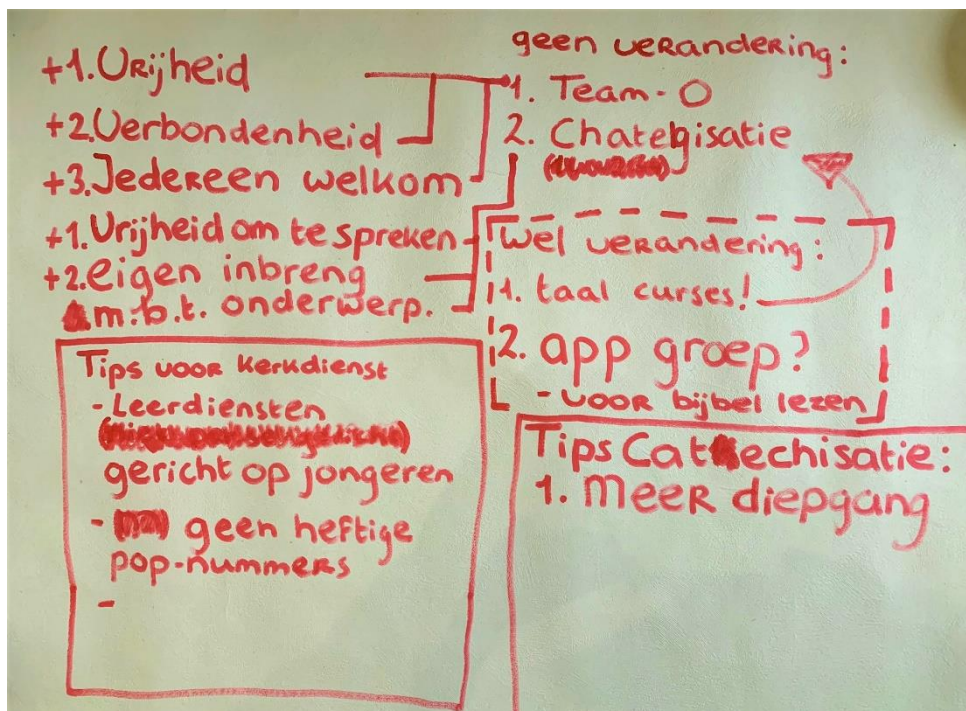 +1. Vrijheid
+2. Verbondenheid
+3. Jedereen welkom
+1. Vrijheid om te spreken
+2. eigen inbreng
m.b.t. onderwerp.
geen verandering:
1. Team-O
2. Chatechisatie
Wel verandering:
1. taal curses!
2. app groep?
- voor bijbel lezen
Tips voor kerkdienst
- Leerdiensten
gericht op jongeren
- geen heftige
pop-nummers
-
Tips Catechisatie:
1. Meer diepgang